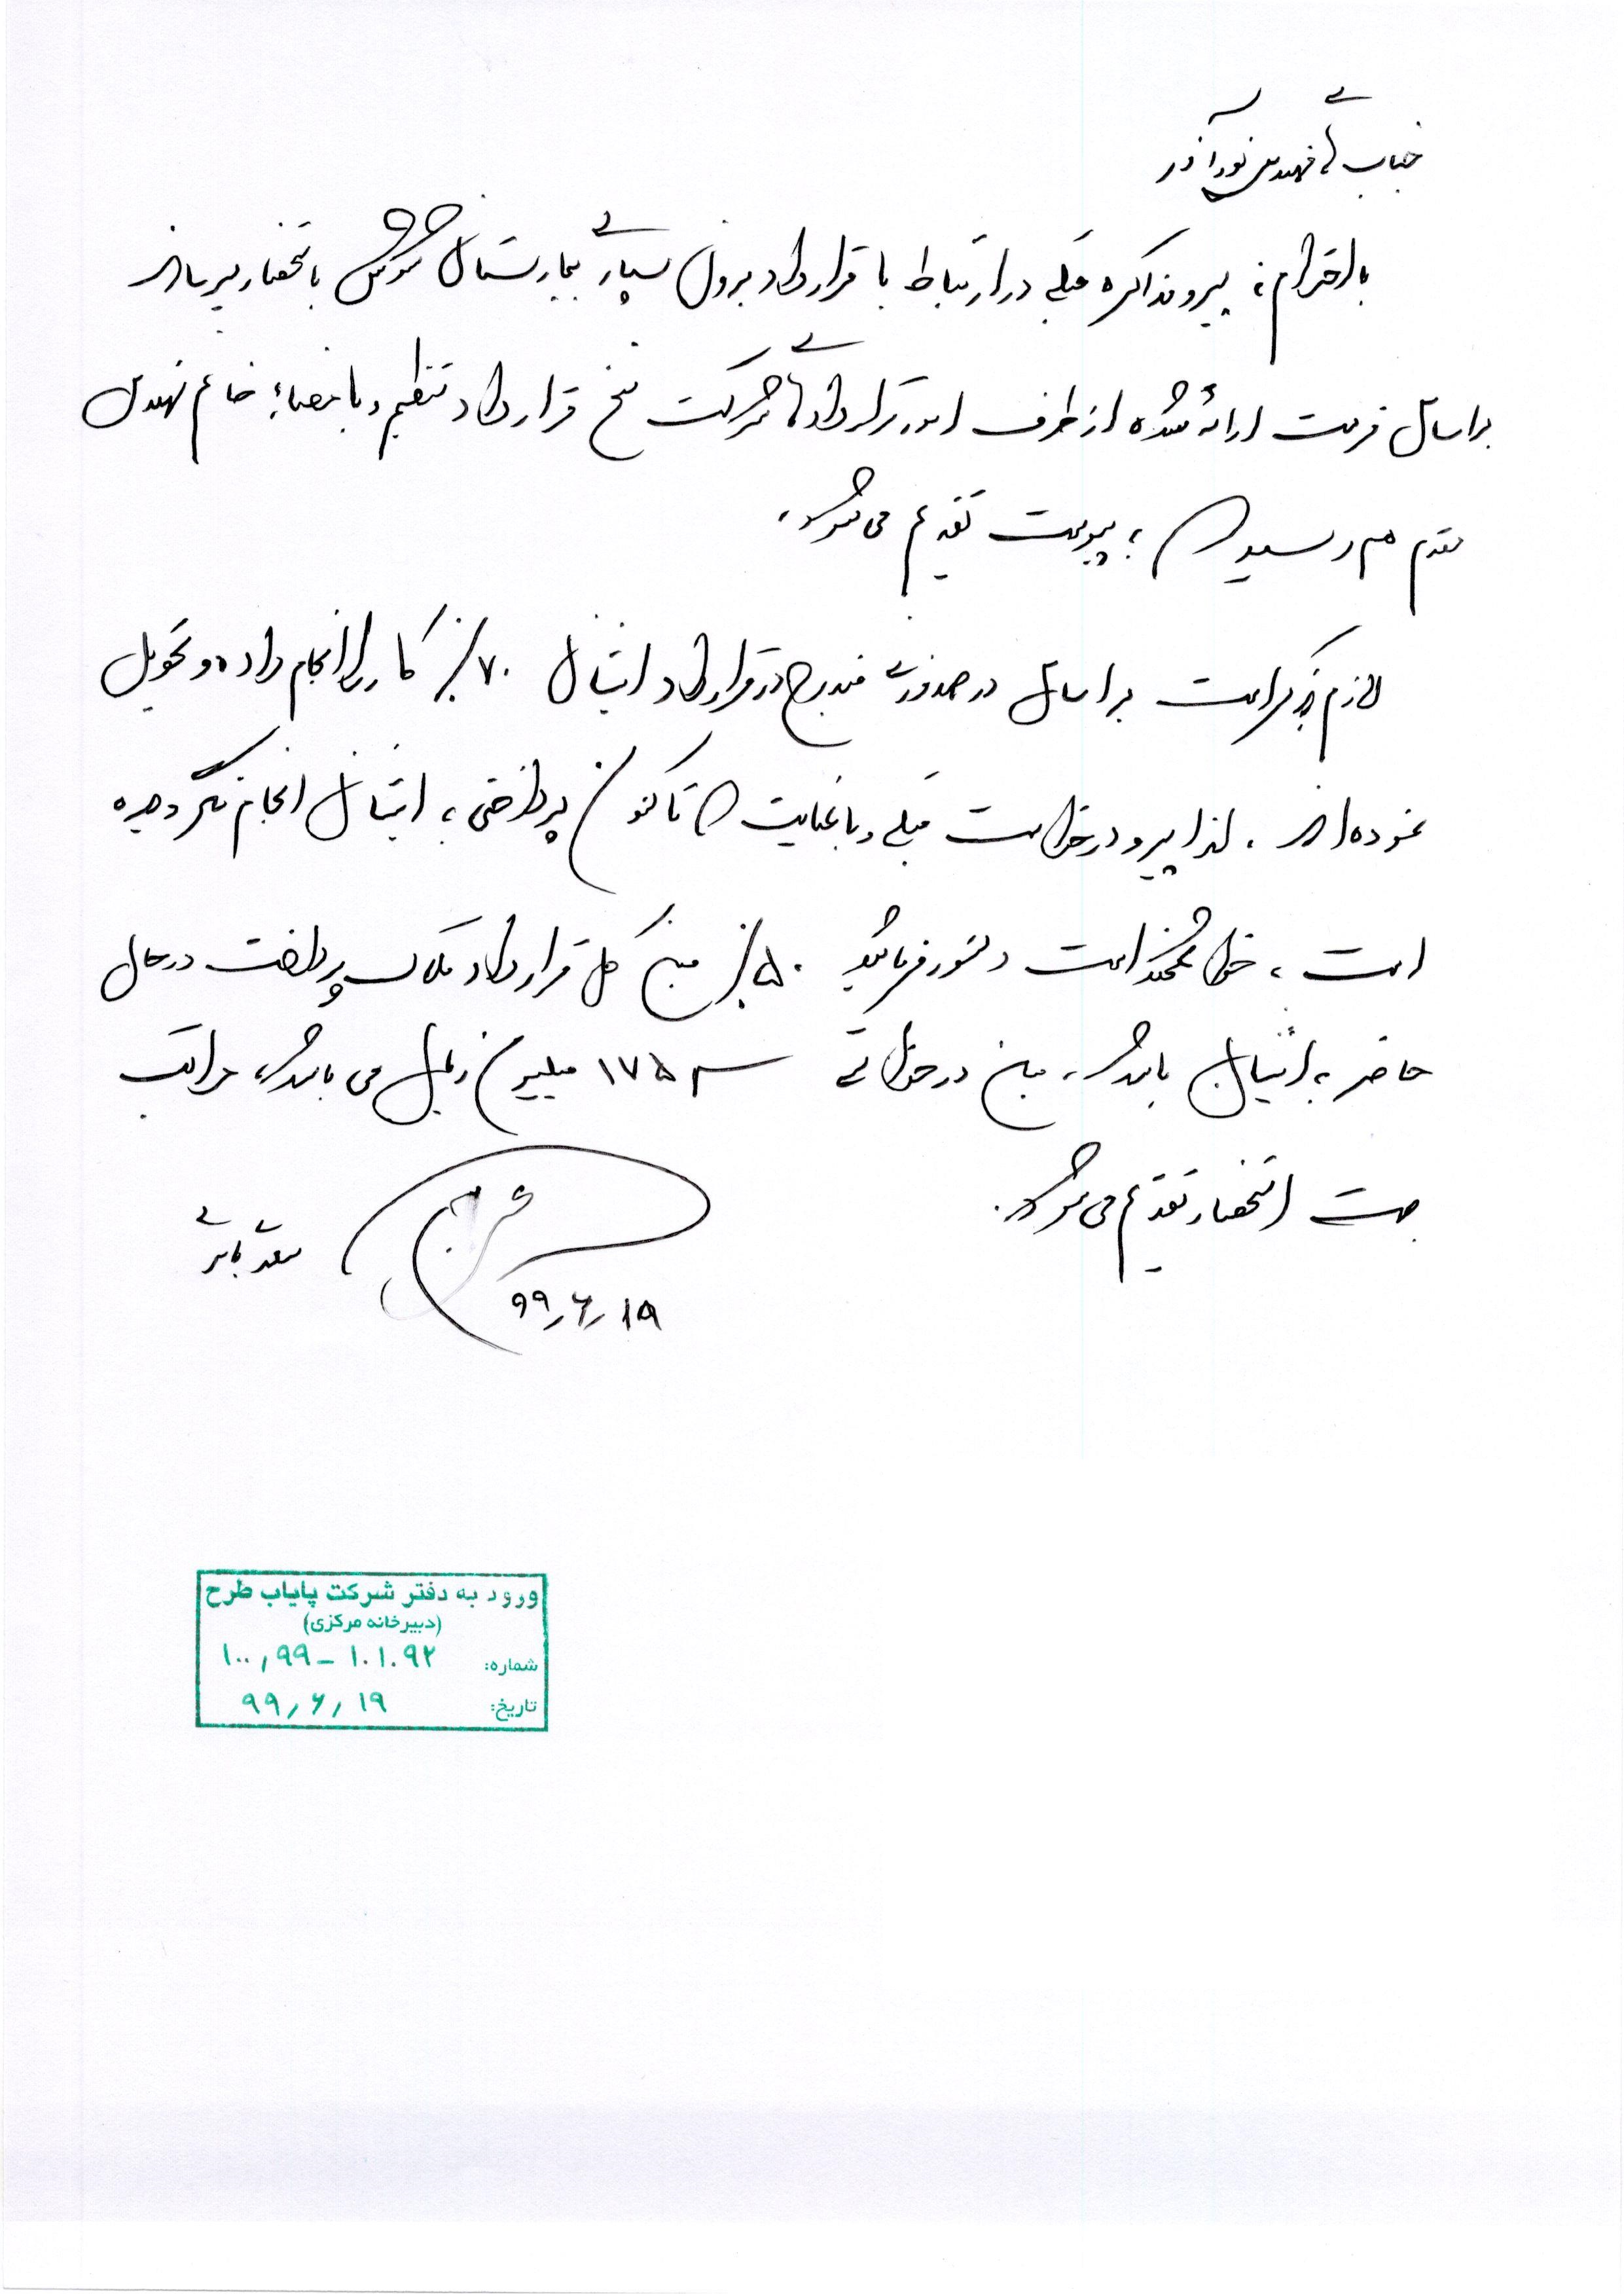 جناب آقای مهندس نورآذر
با احترام، پیرو مذاکره قبلی در ارتباط با قرارداد برون سپاری بیمارستان شوش باستحضار میرساند
براساس فرمت ارائه شده از طرف امور قراردادهای شرکت نسخ قرارداد تنظیم و با امضاء خانم مهندس
مقدم هم رسیده، پیوست تقدیم می شود.
لازم بذکر است براساس درصدهای مندرج در قرارداد ایشان ۷۰٪ کار را انجام داده و تحویل
نموده اند. لذا پیرو درخواست قبلی و با عنایت تاکنون پرداختی به ایشان انجام نگردیده
است، خواهشمند است دستور فرمائید ۵۰٪ مبلغ کل قرارداد ملاک پرداخت در حال
حاضر به ایشان باشد. مبلغ درخواستی ۱۷۵ میلیون ریال می باشد، مراتب
جهت استحضار تقدیم می شود.
۹۹/۶/۱۹
ورود به دفتر شرکت پایاب طرح
(دبیرخانه مرکزی)
شماره: ۱۰۰/۹۹-۱۰۱۰۹۲
تاریخ: ۹۹/۶/۱۹